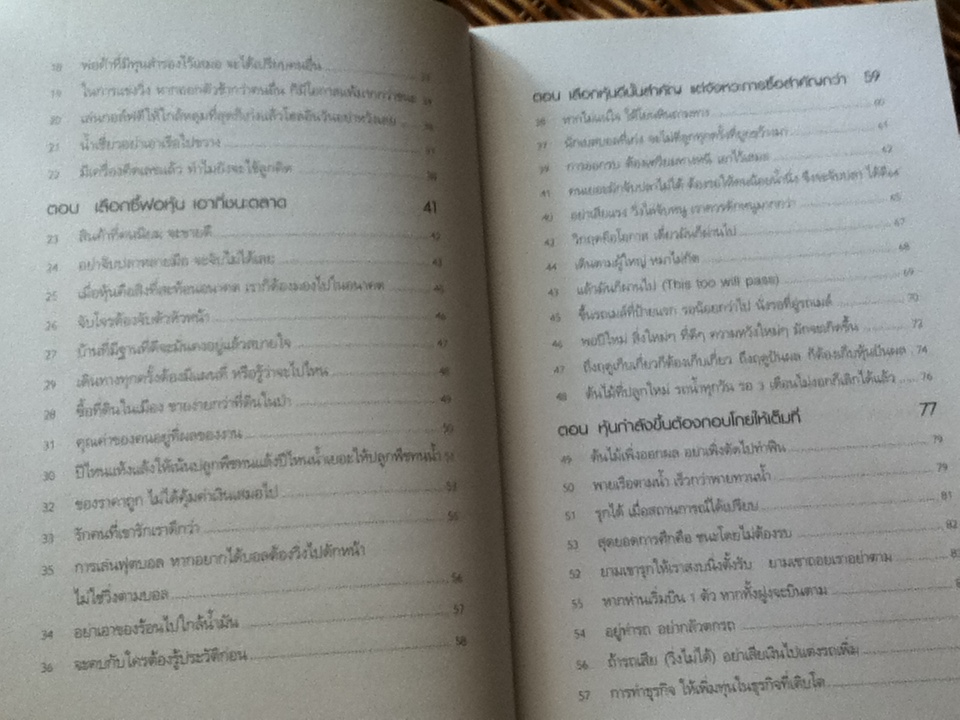 18 พ่อค้าที่มีทุนสำรองไว้เสมอ จะได้เปรียบคนอื่น
19 ในการแข่งวิ่ง หากออกตัวช้ากว่าคนอื่น ก็มีโอกาสแพ้มากกว่าชนะ
20 เล่นกอล์ฟตีให้ใกล้หลุมที่สุดก็เก่งแล้วโฮลอินวันอย่าหวังเลย
21 น้ำเชี่ยวอย่าเอาเรือไปขวาง
22 มีเครื่องคิดเลขแล้ว ทำไมยังจะใช้ลูกคิด
ตอน เลือกซื้อหุ้น เอาที่ชนะตลาด 41
23 สินค้าที่คนนิยม จะขายดี 42
24 อย่าจับปลาหลายมือ จะจับไม่ได้เลย 43
25 เมื่อหุ้นคือสิ่งที่สะท้อนอนาคต เราก็ต้องมองไปในอนาคต 45
26 จับโจรต้องจับตัวหัวหน้า 46
27 บ้านที่มีฐานที่ดีจะมั่นคงอยู่แล้วสบายใจ 47
29 เดินทางทุกครั้งต้องมีแผนที่ หรือรู้ว่าจะไปไหน 48
28 ซื้อที่ดินในเมือง ขายง่ายกว่าที่ดินในป่า 49
31 คุณค่าของคนอยู่ที่ผลของงาน 50
30 ปีไหนแห้งแล้งให้เน้นปลูกพืชทนแล้งปีไหนน้ำเยอะให้ปลูกพืชทนน้ำ 51
32 ของราคาถูก ไม่ได้คุ้มค่าเงินเสมอไป 53
33 รักคนที่เขารักเราดีกว่า 55
35 การเล่นฟุตบอล หากอยากได้บอลต้องวิ่งไปดักหน้า
ไม่ใช่วิ่งตามบอล 56
34 อย่าเอาของร้อนไปใกล้น้ำมัน 57
36 จะคบกับใครต้องรู้ประวัติก่อน 58
ตอน เลือกหุ้นดีนั้นสำคัญ แต่จังหวะการซื้อสำคัญกว่า 59
38 หากไม่แน่ใจ ให้โยนหินถามทาง 60
37 นักเบสบอลที่เก่ง จะไม่ตีลูกทุกครั้งที่ถูกขว้างมา 61
39 การออกรบ ต้องเตรียมทางหนี เอาไว้เสมอ 62
41 คนเยอะมักจับปลาไม่ได้ ต้องรอให้คนน้อยน้ำนิ่ง จึงจะจับปลา ได้ดี 64
40 อย่าเสียแรง วิ่งไล่จับหนู เราควรดักหนูมากกว่า 65
42 วิกฤตคือโอกาส เดี๋ยวมันก็ผ่านไป 67
44 เดินตามผู้ใหญ่ หมาไม่กัด 68
43 แล้วมันก็ผ่านไป (This too will pass) 69
45 ขึ้นรถเมล์ที่ป้ายแรก รอน้อยกว่าไป นั่งรอที่อู่รถเมล์ 70
46 พอปีใหม่ สิ่งใหม่ๆ ที่ดีๆ ความหวังใหม่ๆ มักจะเกิดขึ้น 72
47 ถึงฤดูเก็บเกี่ยวก็ต้องเก็บเกี่ยว ถึงฤดูปันผล ก็ต้องเก็บหุ้นปันผล 74
48 ต้นไม้ที่ปลูกใหม่ รถน้ำทุกวัน รอ 3 เดือนไม่งอกก็เลิกได้แล้ว 76
ตอน หุ้นกำลังขึ้นต้องกอบโกยให้เต็มที่ 77
49 ต้นไม้เพิ่งออกผล อย่าเพิ่งตัดไปทำฟืน 79
50 พายเรือตามน้ำ เร็วกว่าพายทวนน้ำ 79
51 รุกได้ เมื่อสถานการณ์ได้เปรียบ 81
53 สุดยอดการศึกคือ ชนะโดยไม่ต้องรบ 82
52 ยามเขารุกให้เราสงบนิ่งตั้งรับ ยามเขาถอยเราอย่าตาม
55 หากห่านเริ่มบิน 1 ตัว หากทั้งฝูงจะบินตาม
54 อยู่ท่ารถ อย่ากลัวตกรถ
56 ถ้ารถเสีย (วิ่งไม่ได้) อย่าเสียเงินไปแต่งรถเพิ่ม
57 การทำธุรกิจ ให้เพิ่มทุนในธุรกิจที่เติบโต